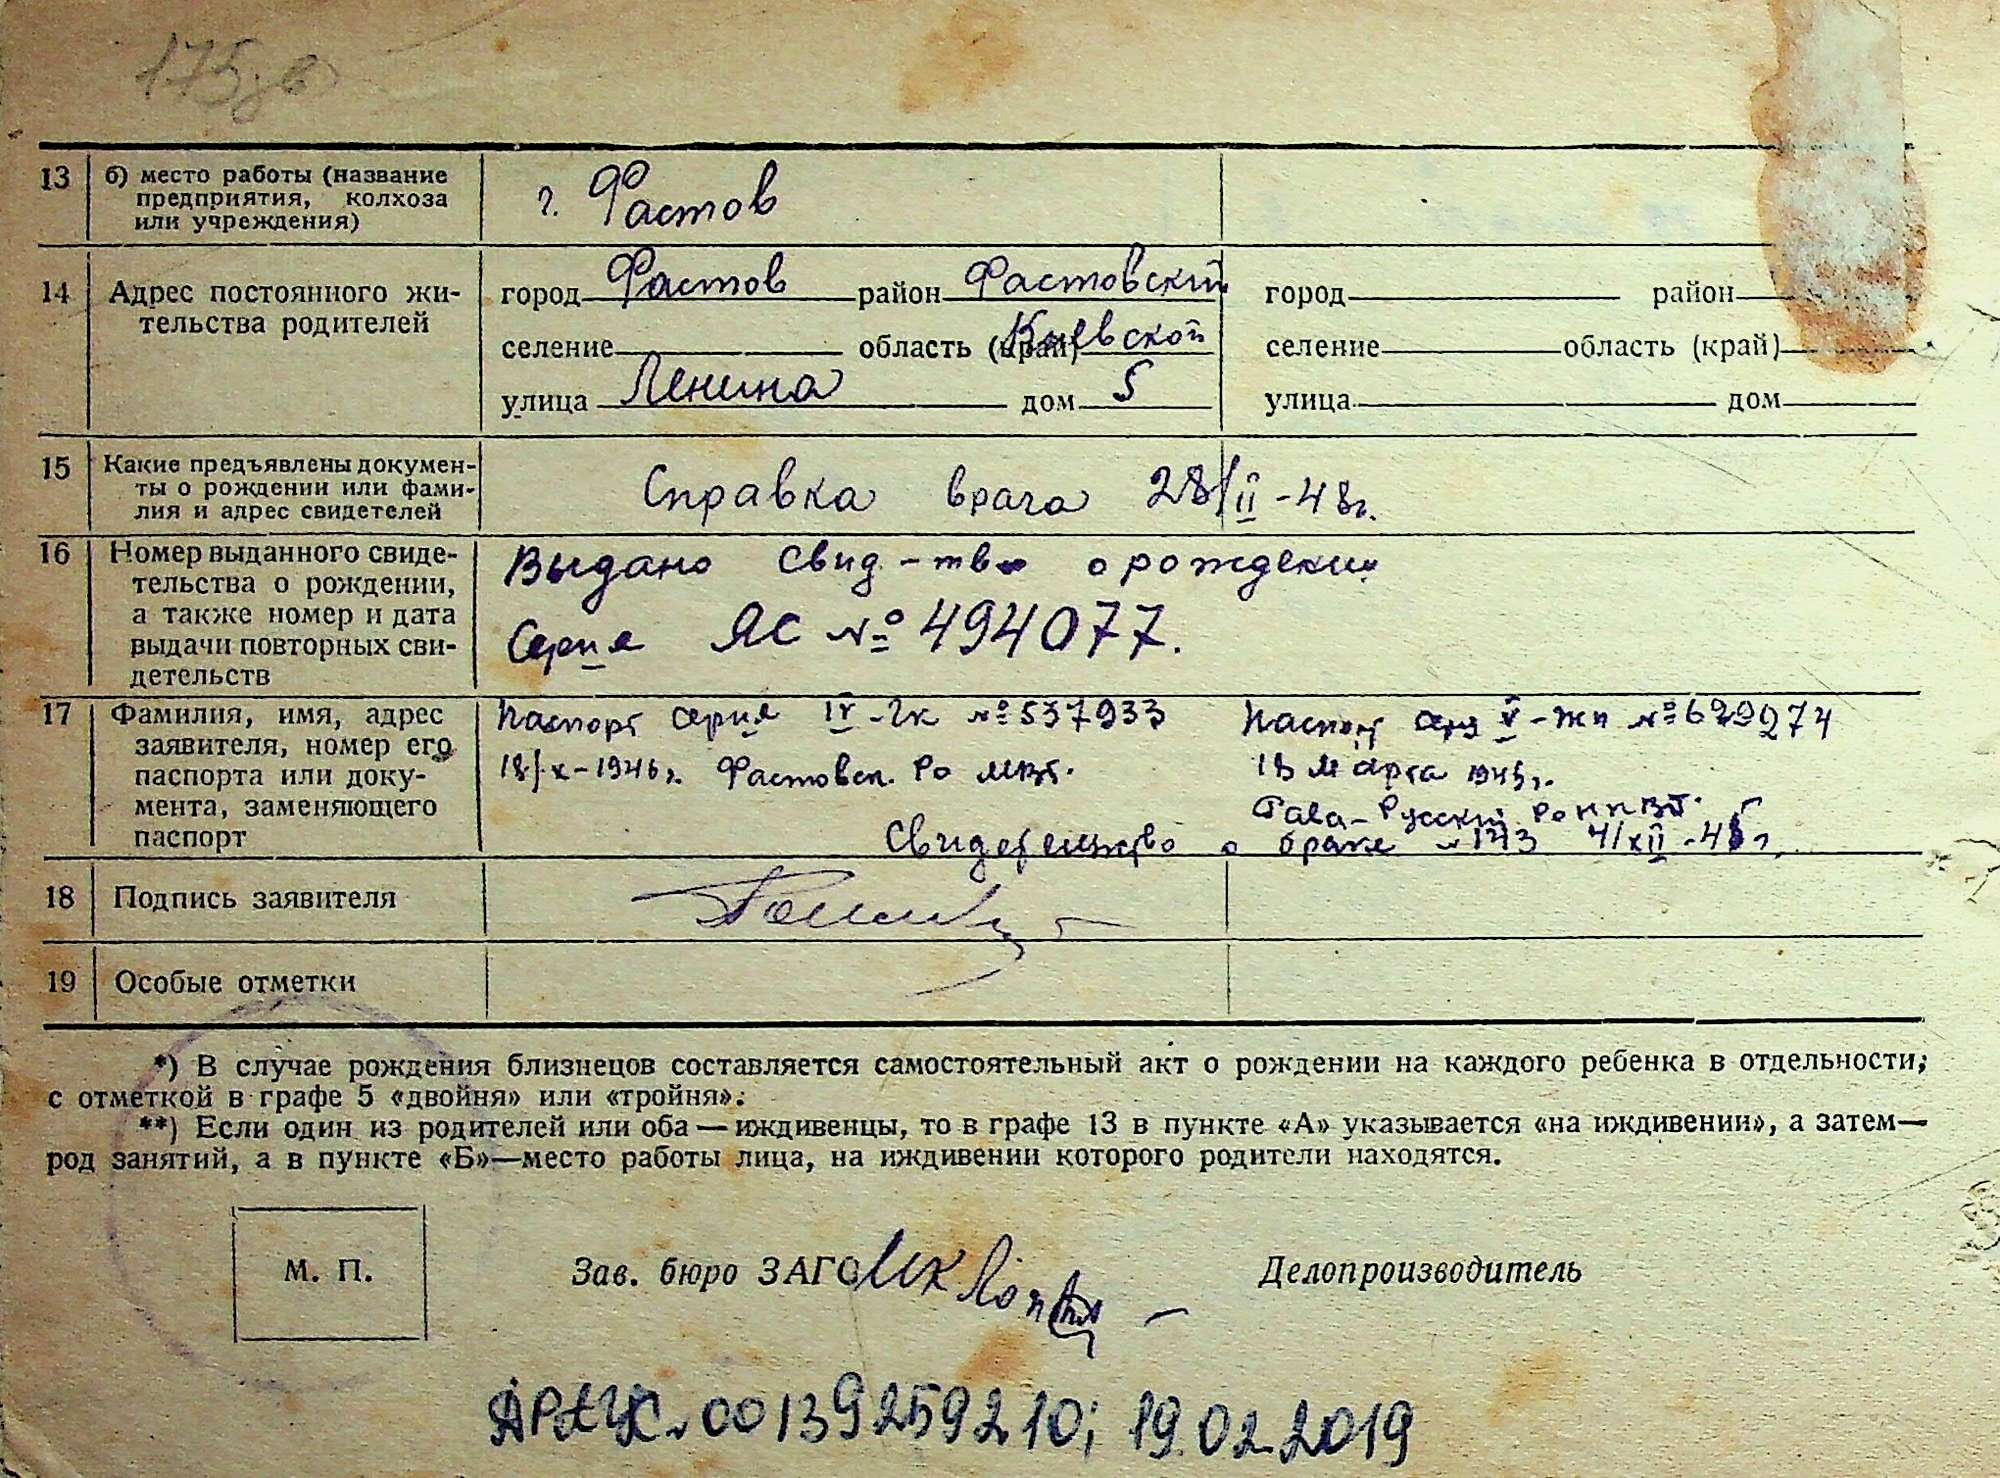 13 б) место работы (название предприятия, колхоза или учреждения) г. Фастов
14 Адрес постоянного жительства родителей
город Фастов район Фастовский город район
селение область (край) Киевской селение область (край)
улица Ленина дом 5 улица дом
15 Какие предъявлены документы о рождении или фамилия и адрес свидетелей
Справка врача 28/II-48г.
16 Номер выданного свидетельства о рождении, а также номер и дата выдачи повторных свидетельств
Выдано свид-тво о рождении
Серия ЯС № 494077.
17 Фамилия, имя, адрес заявителя, номер его паспорта или документа, заменяющего паспорт
Паспорт серия IV-ГК № 537933
18/X-1946г. Фастовск. РО МВД.
Паспорт V-ЖП № 629274
18 Марта
Рава-Русский РО НКВД.
Свидетельство о браке № 143 4/XII-45г.
18 Подпись заявителя
19 Особые отметки
*) В случае рождения близнецов составляется самостоятельный акт о рождении на каждого ребенка в отдельности,
с отметкой в графе 5 «двойня» или «тройня».
**) Если один из родителей или оба — иждивенцы, то в графе 13 в пункте «А» указывается «на иждивении», а затем —
род занятий, а в пункте «Б» — место работы лица, на иждивении которого родители находятся.
М. П. Зав. бюро ЗАГС Делопроизводитель
00139259210; 19.02.2019